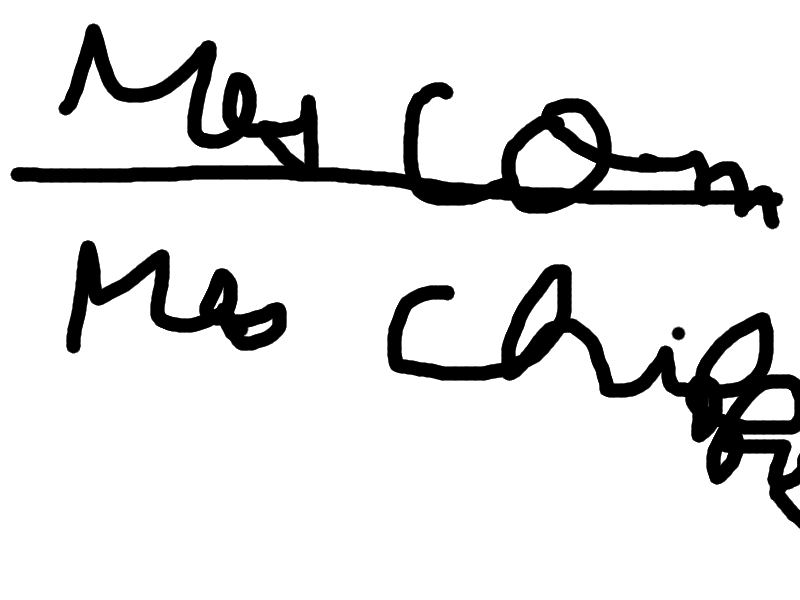 Mes Com
Mes Chiffre